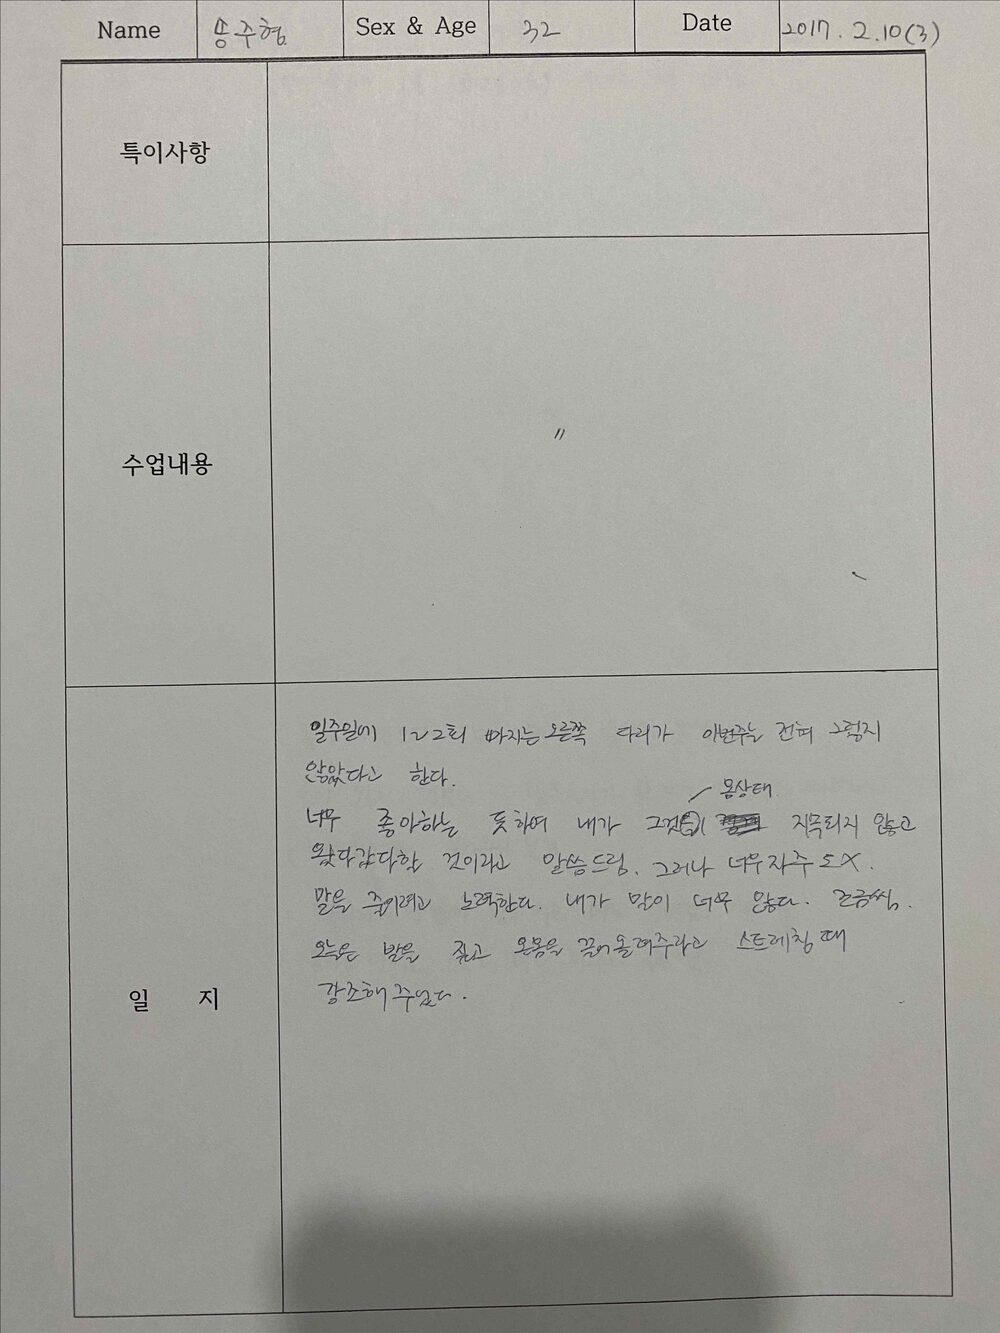 Name 송주형 Sex & Age 32 Date 2017. 2.10(3)
특이사항
수업내용
〃
일 지
일주일에 1~2회 마지는 오른쪽 다리가 이번주는 전혀 그렇지
않았다고 한다.
몸상태
너무 좋아하는 듯하여 내가 그것이 지속되지 않고
왔다갔다할 것이라고 말씀드림. 그러나 너무자주도X.
말을 줄이려고 노력한다. 내가 말이 너무 많다. 조금씩.
오늘은 발을 짚고 온몸을 끌어올려주라고 스트레칭때
강조해주었다.